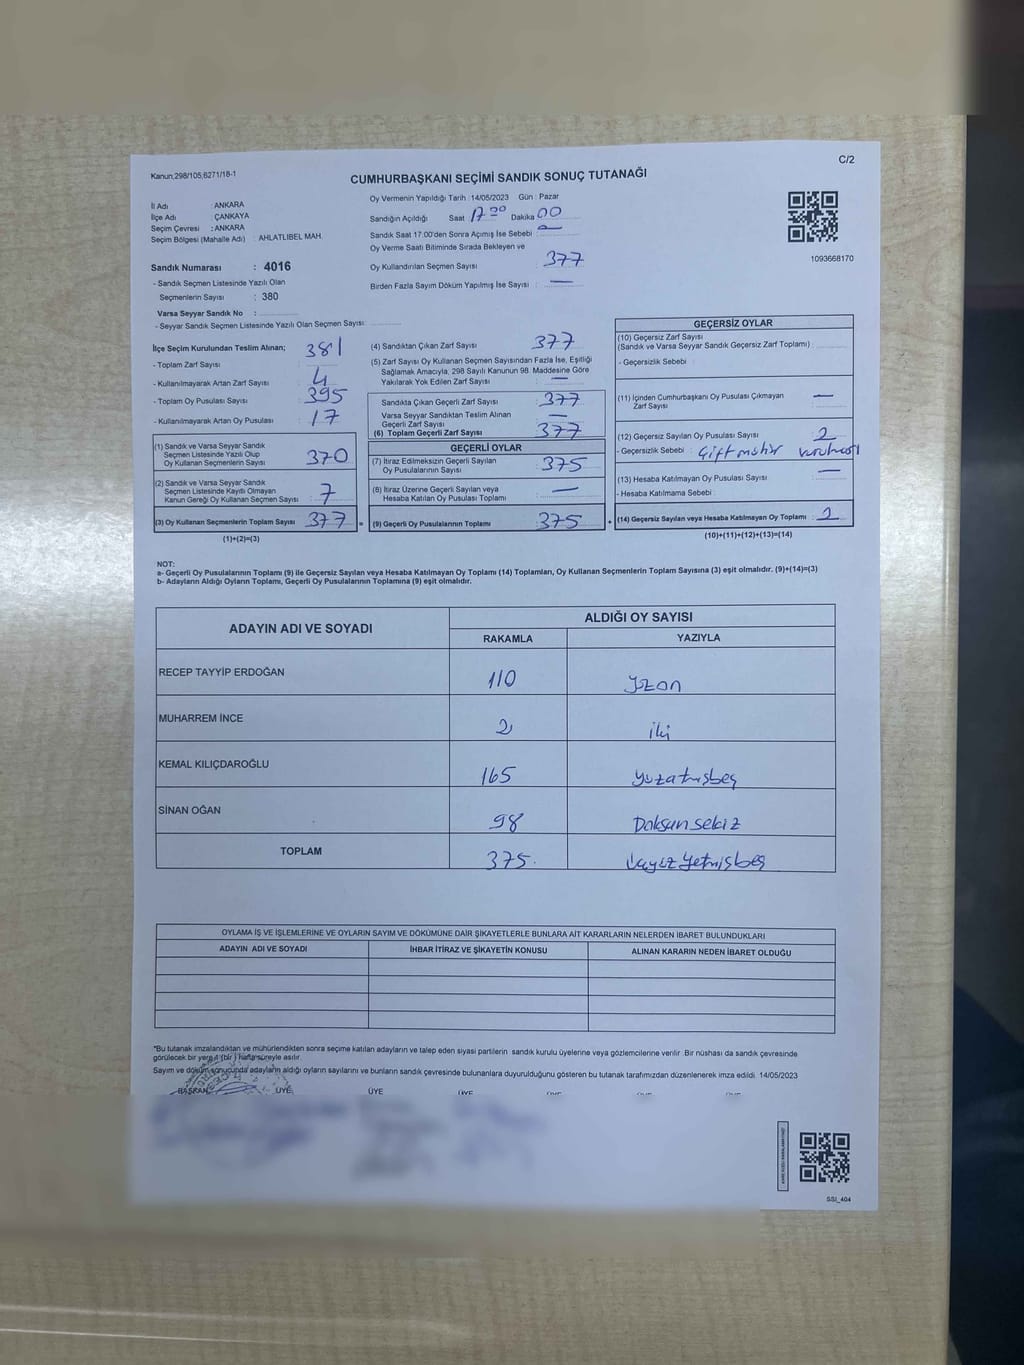 C/2
Kanun,298/105,6271/18-1
CUMHURBAŞKANI SEÇİMİ SANDIK SONUÇ TUTANAĞI
İl Adı : ANKARA
İlçe Adı : ÇANKAYA
Seçim Çevresi : ANKARA
Seçim Bölgesi (Mahalle Adı) : AHLATLIBEL MAH.
Sandık Numarası : 4016
- Sandık Seçmen Listesinde Yazılı Olan
Seçmenlerin Sayısı : 380
Varsa Seyyar Sandık No :
- Seyyar Sandık Seçmen Listesinde Yazılı Olan Seçmen Sayısı:
Oy Vermenin Yapıldığı Tarih :14/05/2023 Gün : Pazar
Sandığın Açıldığı Saat 17 00 Dakika 00
Sandık Saat 17.00'den Sonra Açımış İse Sebebi : —
Oy Verme Saati Bitiminde Sırada Bekleyen ve
Oy Kullandırılan Seçmen Sayısı : 377
Birden Fazla Sayım Döküm Yapılmış İse Sayısı : —
1093668170
İlçe Seçim Kurulundan Teslim Alınan;
- Toplam Zarf Sayısı : 381
- Kullanılmayarak Artan Zarf Sayısı : 4
- Toplam Oy Pusulası Sayısı : 395
- Kullanılmayarak Artan Oy Pusulası : 17
(1) Sandık ve Varsa Seyyar Sandık
Seçmen Listesinde Yazılı Olup
Oy Kullanan Seçmenlerin Sayısı : 370
(2) Sandık ve Varsa Seyyar Sandık
Seçmen Listesinde Kayıtlı Olmayan
Kanun Gereği Oy Kullanan Seçmen Sayısı : 7
(3) Oy Kullanan Seçmenlerin Toplam Sayısı : 377 =
(1)+(2)=(3)
(4) Sandıktan Çıkan Zarf Sayısı : 377
(5) Zarf Sayısı Oy Kullanan Seçmen Sayısından Fazla İse, Eşitliği
Sağlamak Amacıyla; 298 Sayılı Kanunun 98. Maddesine Göre
Yakılarak Yok Edilen Zarf Sayısı : —
Sandıkta Çıkan Geçerli Zarf Sayısı : 377
Varsa Seyyar Sandıktan Teslim Alınan
Geçerli Zarf Sayısı : —
(6) Toplam Geçerli Zarf Sayısı : 377
GEÇERLİ OYLAR
(7) İtiraz Edilmeksizin Geçerli Sayılan
Oy Pusulalarının Sayısı : 375
(8) İtiraz Üzerine Geçerli Sayılan veya
Hesaba Katılan Oy Pusulası Toplamı : —
(9) Geçerli Oy Pusulalarının Toplamı : 375 +
GEÇERSİZ OYLAR
(10) Geçersiz Zarf Sayısı
(Sandık ve Varsa Seyyar Sandık Geçersiz Zarf Toplamı) :
- Geçersizlik Sebebi :
(11) İçinden Cumhurbaşkanı Oy Pusulası Çıkmayan
Zarf Sayısı : —
(12) Geçersiz Sayılan Oy Pusulası Sayısı : 2
- Geçersizlik Sebebi : Çift mühür vurulması
(13) Hesaba Katılmayan Oy Pusulası Sayısı : —
- Hesaba Katılmama Sebebi :
(14) Geçersiz Sayılan veya Hesaba Katılmayan Oy Toplamı : 2
(10)+(11)+(12)+(13)=(14)
NOT:
a- Geçerli Oy Pusulalarının Toplamı (9) ile Geçersiz Sayılan veya Hesaba Katılmayan Oy Toplamı (14) Toplamları, Oy Kullanan Seçmenlerin Toplam Sayısına (3) eşit olmalıdır. (9)+(14)=(3)
b- Adayların Aldığı Oyların Toplamı, Geçerli Oy Pusulalarının Toplamına (9) eşit olmalıdır.
ADAYIN ADI VE SOYADI ALDIĞI OY SAYISI
RAKAMLA YAZIYLA
RECEP TAYYİP ERDOĞAN 110 Yüzon
MUHARREM İNCE 2 iki
KEMAL KILIÇDAROĞLU 165 yüzatmışbeş
SİNAN OĞAN 98 Doksan sekiz
TOPLAM 375. Üçyüz Yetmişbeş
OYLAMA İŞ VE İŞLEMLERİNE VE OYLARIN SAYIM VE DÖKÜMÜNE DAİR ŞİKAYETLERLE BUNLARA AİT KARARLARIN NELERDEN İBARET BULUNDUKLARI
ADAYIN ADI VE SOYADI İHBAR İTİRAZ VE ŞİKAYETİN KONUSU ALINAN KARARIN NEDEN İBARET OLDUĞU
*Bu tutanak imzalandıktan ve mühürlendikten sonra seçime katılan adayların ve talep eden siyasi partilerin sandık kurulu üyelerine veya gözlemcilerine verilir. Bir nüshası da sandık çevresinde
görülecek bir yere 1 (bir) hafta süreyle asılır.
Sayım ve döküm sonucunda adayların aldığı oyların sayılarını ve bunların sandık çevresinde bulunanlara duyurulduğunu gösteren bu tutanak tarafımızdan düzenlenerek imza edildi. 14/05/2023
BAŞKAN ÜYE ÜYE ÜYE
SSI_404